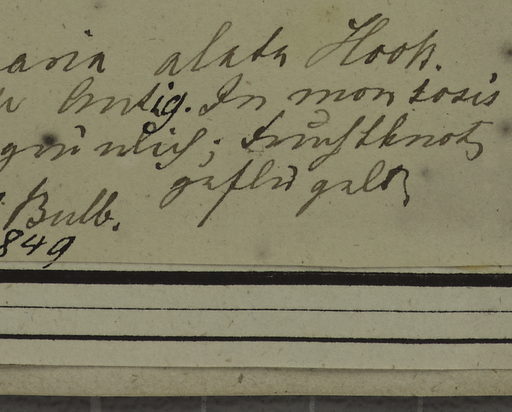 aria alata Hook.
Antig. In montosis
grünlich; Fruchtknoten
geflügelt
Bulb.
849